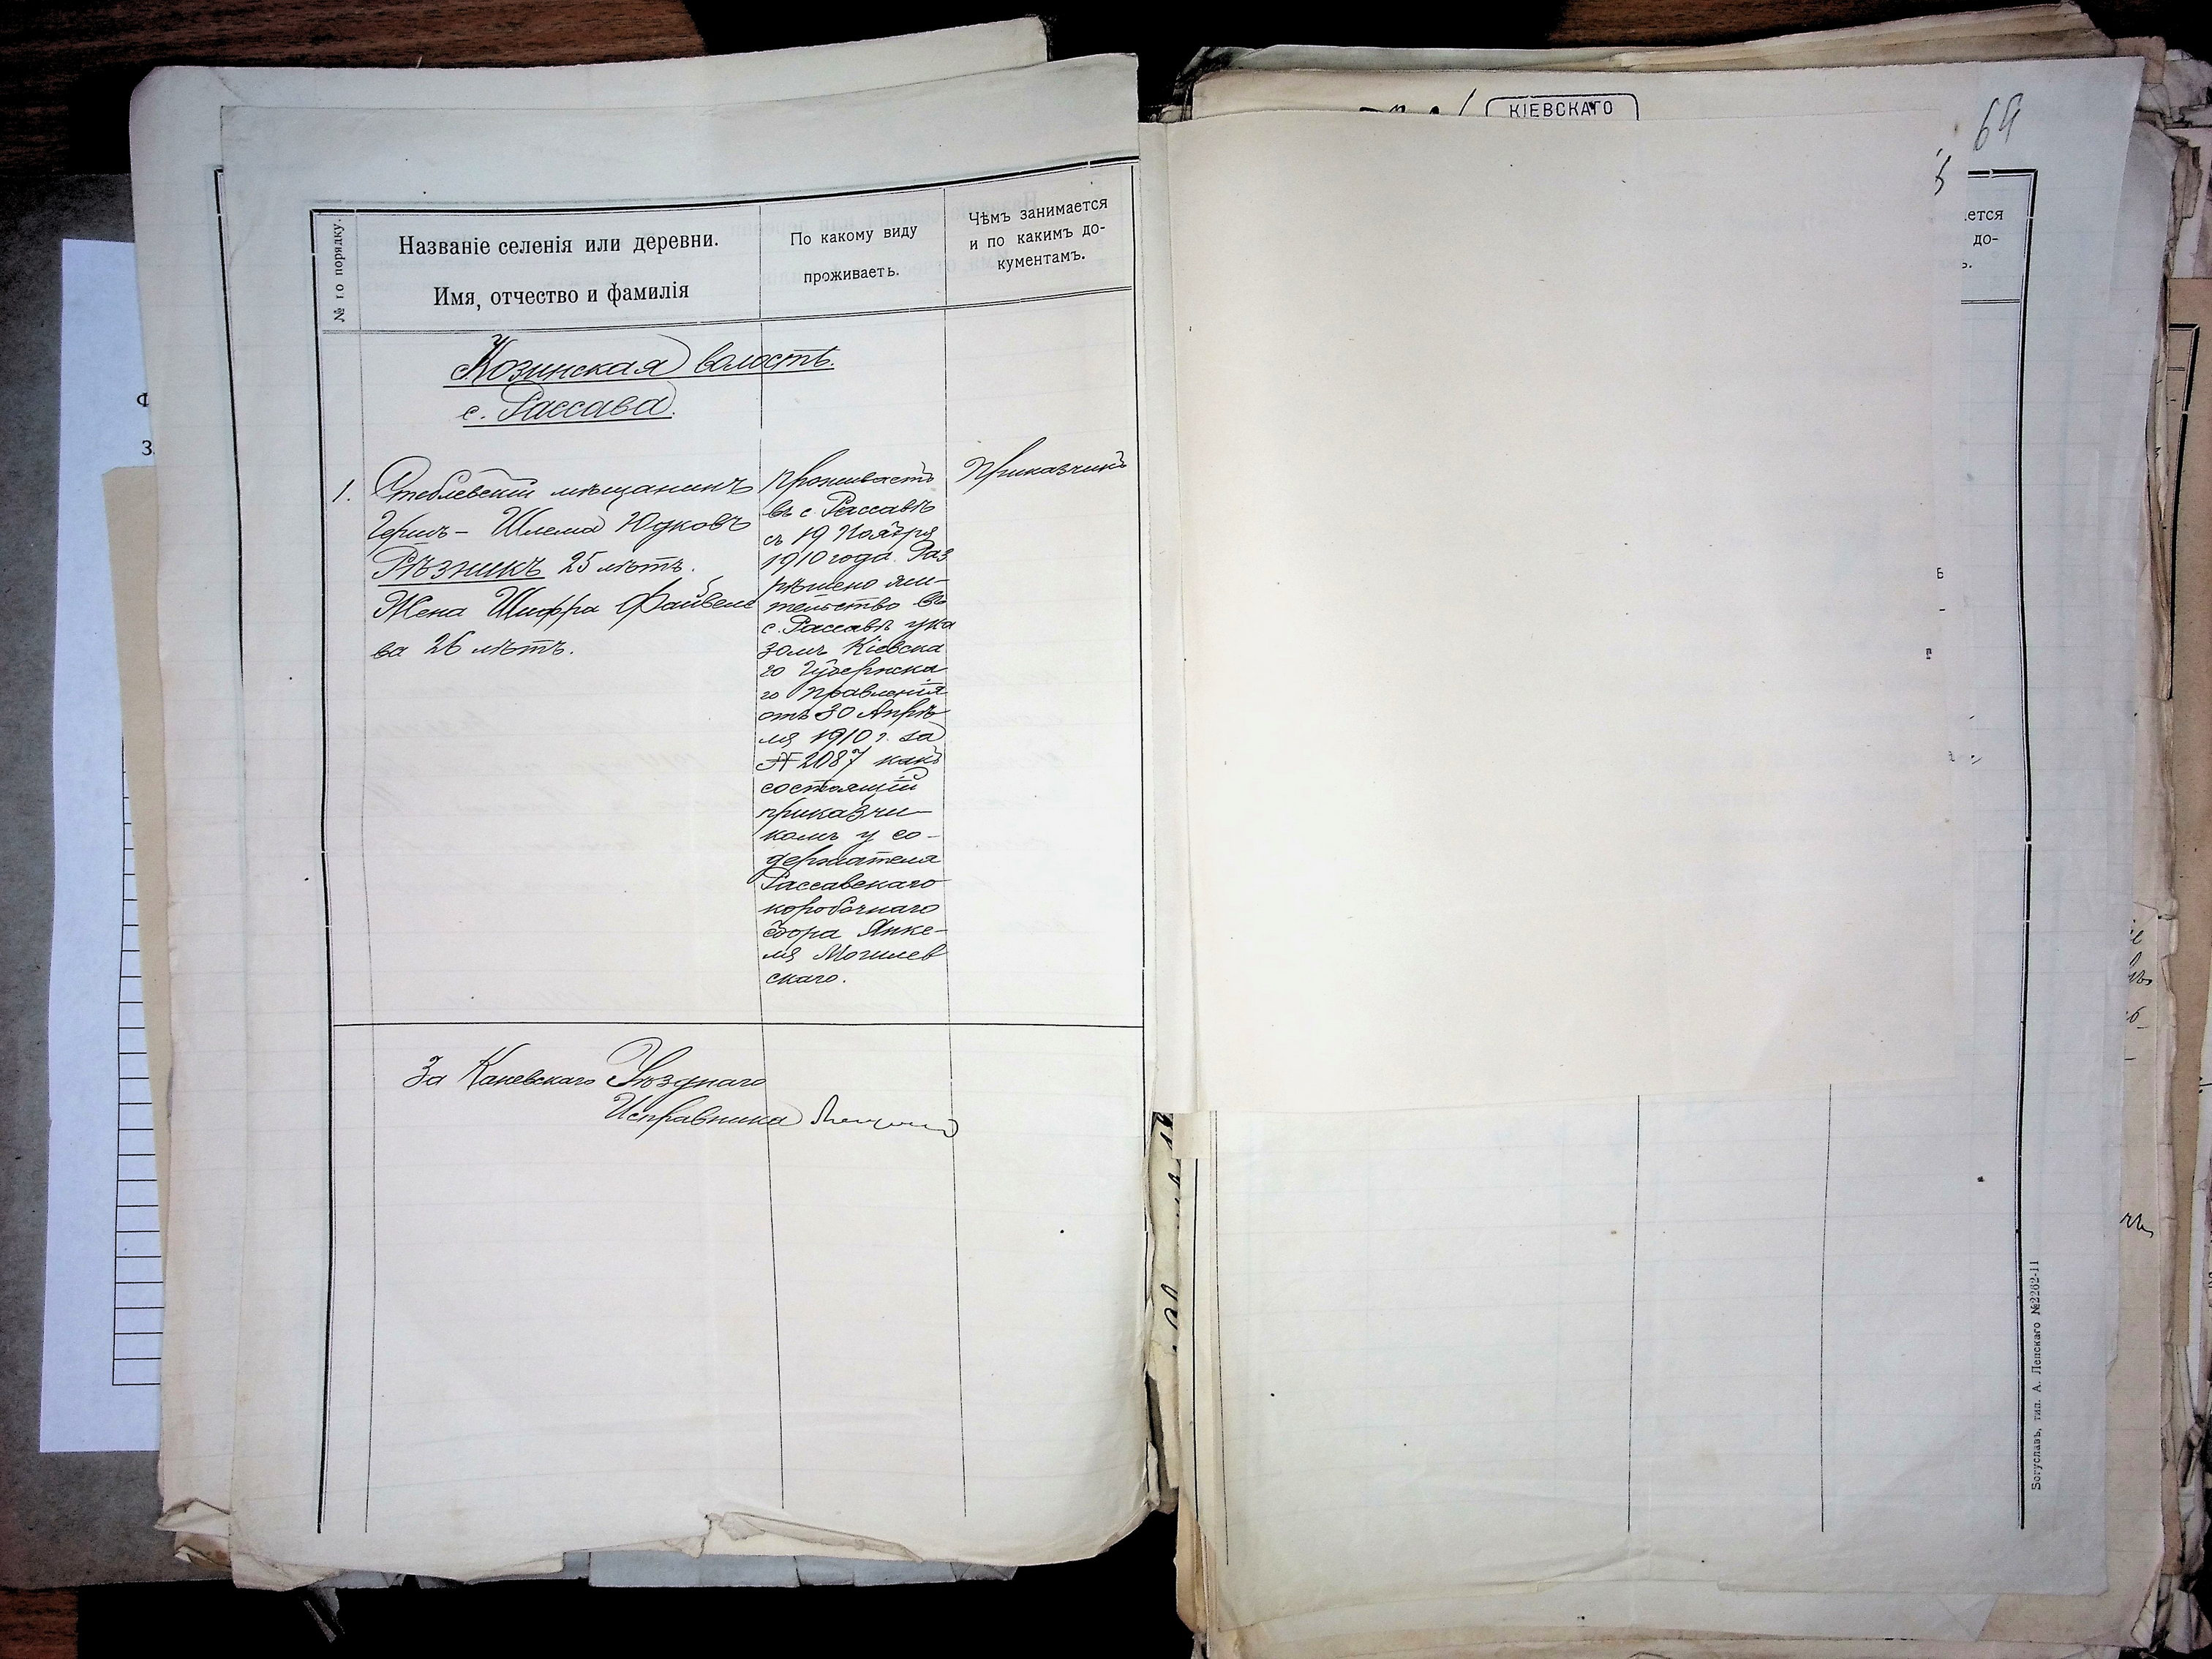 КІЕВСКАГО
64
№ по порядку.
Названіе селенія или деревни.
Имя, отчество и фамилія
По какому виду
проживаетъ.
Чѣмъ занимается
и по какимъ до-
кументамъ.
Козинская волость.
с. Рассава.
1.
Стеблевскій мѣщанинъ
Гершъ - Шлема Юдковъ
Рѣзникъ 25 лѣтъ.
Жена Шифра Файвеле
ва 26 лѣтъ.
Проживаетъ
въ с. Рассавѣ
съ 19 Ноября
1910 года. Раз
рѣшено жи-
тельство въ
с. Рассавѣ ука
зомъ Кіевска
го Губернска
го Правленія
отъ 30 Апрѣ
ля 1910 г. за
№ 2087 какъ
состоящій
приказчи-
комъ у со-
держателя
Рассавскаго
коробочнаго
сбора Янке-
ля Могилев
скаго.
Приказчикъ
За Каневскаго Уѣзднаго
Исправника
ется
до-
ъ.
Богуславъ, тип. А. Лепскаго №2262-11